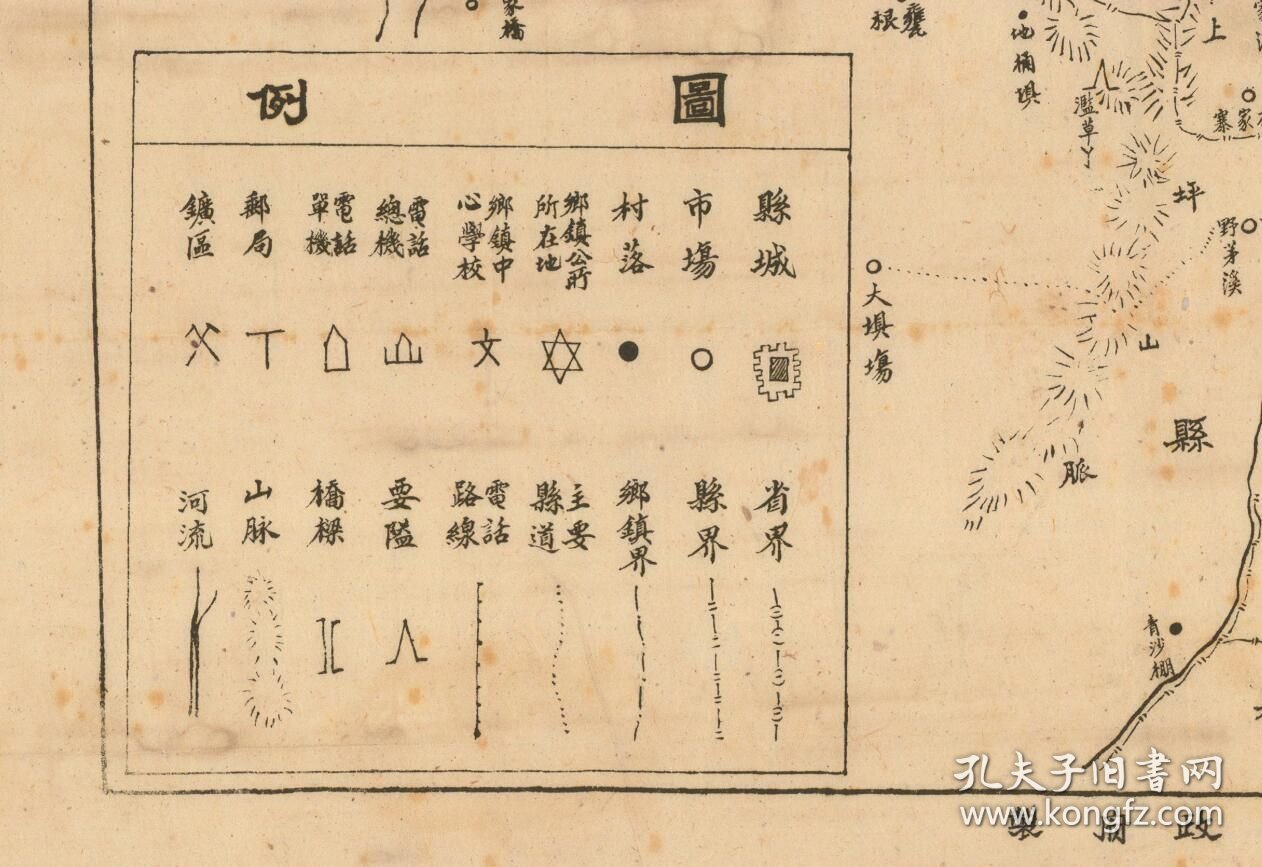 圖例
縣城
市場
村落
鄉鎮公所所在地
鄉鎮中心學校
電話總機
電話單機
郵局
鑛區
省界
縣界
鄉鎮界
主要縣道
電話路線
要隘
橋樑
山脉
河流
家橋
地桶垻
上
濫草丫
家寨
坪
野茅溪
大垻塲
山
縣
脈
青沙棚
政府製
孔夫子旧書网
www.kongfz.com